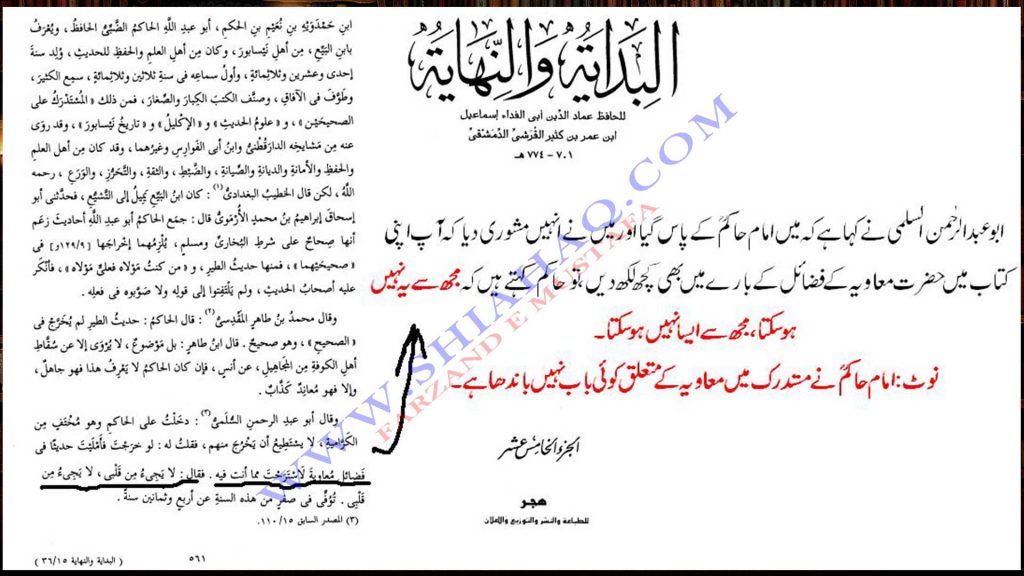 البداية والنهاية
للحافظ عماد الدين أبى الفداء إسماعيل
ابن عمر بن كثير القرشىّ الدّمشقىّ
٧٠١ - ٧٧٤ هـ
ابنِ حَمْدَوَيْهِ بنِ نُعَيْمِ بنِ الحكم، أبو عبدِ اللَّهِ الحاكمُ الضَّبِّىُّ الحافظُ، ويُعْرَفُ
بابنِ البَيِّعِ، مِن أهلِ نَيْسابورَ، وكان مِن أهلِ العلمِ والحفظِ للحديثِ، وُلِد سنةَ
إحدى وعشرين وثلاثِمائةٍ، وأولُ سماعِه فى سنةِ ثلاثين وثلاثِمائةٍ، سمِع الكثيرَ،
وطَوَّف فى الآفاقِ، وصنَّف الكتبَ الكِبارَ والصِّغارَ، فمن ذلك «المُسْتَدْرَكُ على
الصحيحَيْن»، و«علومُ الحديثِ» و«الإكليلُ» و«تاريخُ نَيْسابورَ»، وقد روَى
عنه مِن مَشايخِه الدارَقُطْنىُّ وابنُ أبى الفَوارِسِ وغيرُهما، وقد كان مِن أهلِ العلمِ
والحفظِ والأمانةِ والديانةِ والصِّيانةِ، والضَّبْطِ، والثقةِ، والتَّحَرُّزِ، والوَرَعِ، رحمه
اللَّهُ، لكن قال الخطيبُ البغدادىُّ(١): كان ابنُ البَيِّعِ يَمِيلُ إلى التَّشَيُّعِ، فحدَّثنى أبو
إسحاقَ إبراهيمُ بنُ محمدٍ الأُرْمَوىُّ قال: جمَع الحاكمُ أبو عبدِ اللَّهِ أحاديثَ زعَم
أنها صِحاحٌ على شرطِ البُخارىِّ ومسلمٍ، يُلْزِمُهما إخراجَها [١٢٩/٩و] فى
«صحيحَيْهما»، فمنها حديثُ الطيرِ، و«من كنتُ مَوْلاه فعلىٌّ مَوْلاه»، فأنْكَر
عليه أصحابُ الحديثِ، ولم يَلْتَفِتوا إلى قولِه ولا صَوَّبوه فى فعلِه.
وقال محمدُ بنُ طاهرٍ المَقْدِسىُّ(٢): قال الحاكمُ: حديثُ الطيرِ لم يُخَرَّجْ فى
«الصحيحِ»، وهو صحيحٌ. قال ابنُ طاهرٍ: بل مَوْضوعٌ، لا يُرْوَى إلا عن سُقَّاطِ
أهلِ الكوفةِ مِن المَجاهيلِ، عن أنسٍ، فإن كان الحاكمُ لا يَعْرِفُ هذا فهو جاهلٌ،
وإلا فهو مُعانِدٌ كَذَّابٌ.
وقال أبو عبدِ الرحمنِ السُّلَمىُّ(٣): دخَلْتُ على الحاكمِ وهو مُخْتَفٍ مِن
الكَرَّاميةِ، لا يستطيعُ أن يَخْرُجَ منهم، فقلتُ له: لو خرَجتَ فأَمْلَيْتَ حديثًا فى
فَضائلِ مُعاويةَ لَاسْتَرَحْتَ مما أنت فيه. فقال: لا يَجِىءُ مِن قَلْبى، لا يَجِىءُ مِن
قَلْبى. تُوُفِّى فى صفرٍ من هذه السنةِ عن أربعٍ وثمانين سنةً.
(٣) المصدر السابق ١١٠/١٥.
٥٦١
(البداية والنهاية ٣٦/١٥)
ابو عبدالرحمٰن السلمی نے کہا ہے کہ میں امام حاکمؒ کے پاس گیا اور میں نے انہیں مشوری دیا کہ آپ اپنی
کتاب میں حضرت معاویہ کے فضائل کے بارے میں بھی کچھ لکھ دیں تو حاکم کہتے ہیں کہ مجھ سے یہ نہیں
ہوسکتا، مجھ سے ایسا نہیں ہوسکتا۔
نوٹ: امام حاکمؒ نے مستدرک میں معاویہ کے متعلق کوئی باب نہیں باندھا ہے۔
الجزء الخامس عشر
هجر
للطباعة والنشر والتوزيع والإعلان
WWW.SHIAHAQ.COM
FARZAND E MUSTAFA